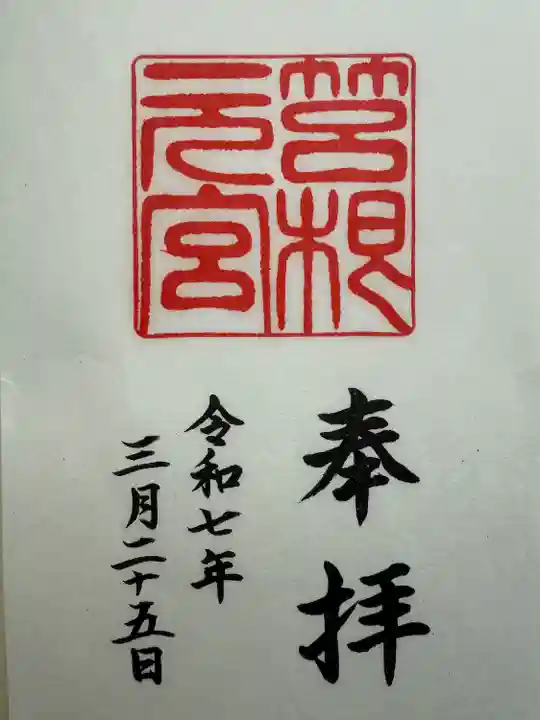 筥根
元宮
奉拝
令和七年
三月二十五日